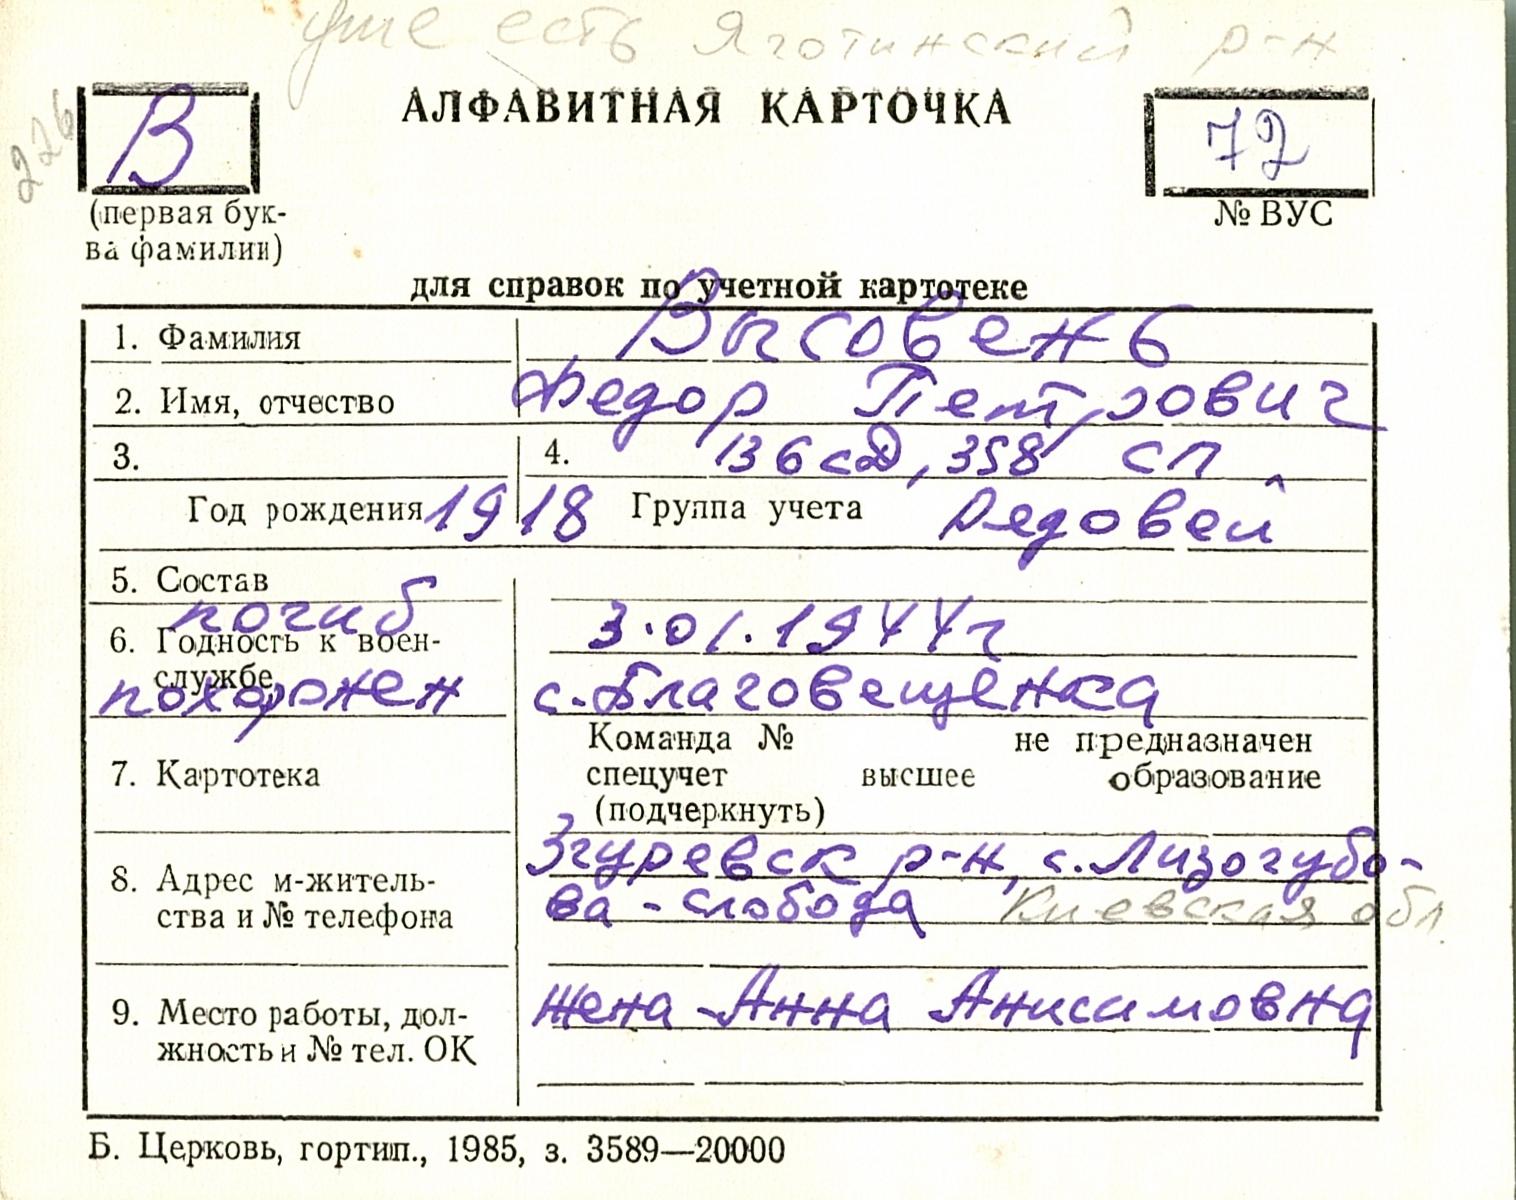 уже есть Яготинский р-н
226
В
АЛФАВИТНАЯ КАРТОЧКА
72
(первая бук-
ва фамилии)
№ ВУС
для справок по учетной картотеке
1. Фамилия Высовень
2. Имя, отчество Федор Петрович
3. 4. 136 сд, 358 сп
Год рождения 1918 Группа учета Рядовей
5. Состав
погиб 3.01.1944 г
6. Годность к воен-
службе
похоронен с. Благовещенка
Команда № не предназначен
7. Картотека спецучет высшее образование
(подчеркнуть)
Згуревск р-н, с. Лизогубо-
8. Адрес м-житель-
ства и № телефона ва-слобода Киевская обл.
9. Место работы, дол- жена - Анна Анисимовна
жность и № тел. ОК
Б. Церковь, гортип., 1985, з. 3589—20000